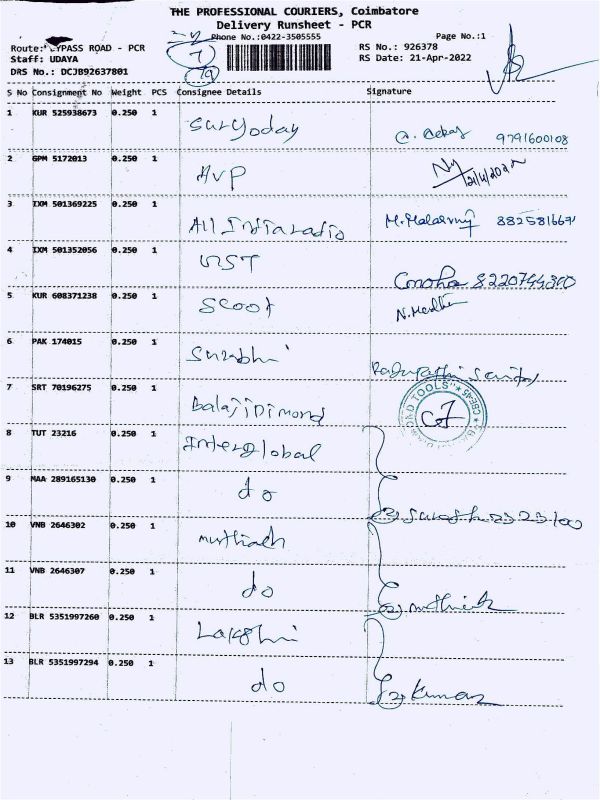 THE PROFESSIONAL COURIERS, Coimbatore
Delivery Runsheet - PCR
Phone No.:0422-3505555
Page No.:1
Route: BYPASS ROAD - PCR
RS No.: 926378
Staff: UDAYA
RS Date: 21-Apr-2022
DRS No.: DCJB92637801
7
S No Consignment No Weight PCS Consignee Details Signature
1 KUR 525938673 0.250 1 Suryoday 9791600108
2 GPM 5172013 0.250 1 AVP
3 IXM 501369225 0.250 1 All India radio 882581667
4 IXM 501352056 0.250 1 8220744300
5 KUR 608371238 0.250 1 Scoot
6 PAK 174015 0.250 1 Surabhi
7 SRT 70196275 0.250 1 Balaji Dimond
TOOLS
8 TUT 23216 0.250 1 Interglobal
9 MAA 289165130 0.250 1 do
10 VNB 2646302 0.250 1 muthiach
11 VNB 2646307 0.250 1 do
12 BLR 5351997260 0.250 1 Lakshmi
13 BLR 5351997294 0.250 1 do
(2) Kumar